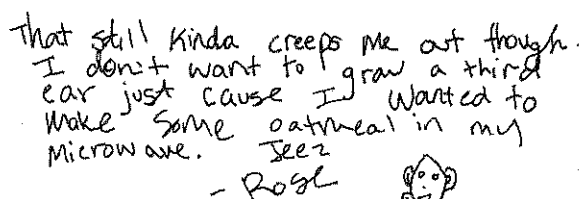 That still kinda creeps me out though.
I don't want to grow a third
ear just cause I wanted to
make some oatmeal in my
microwave. Jeez
- Rose